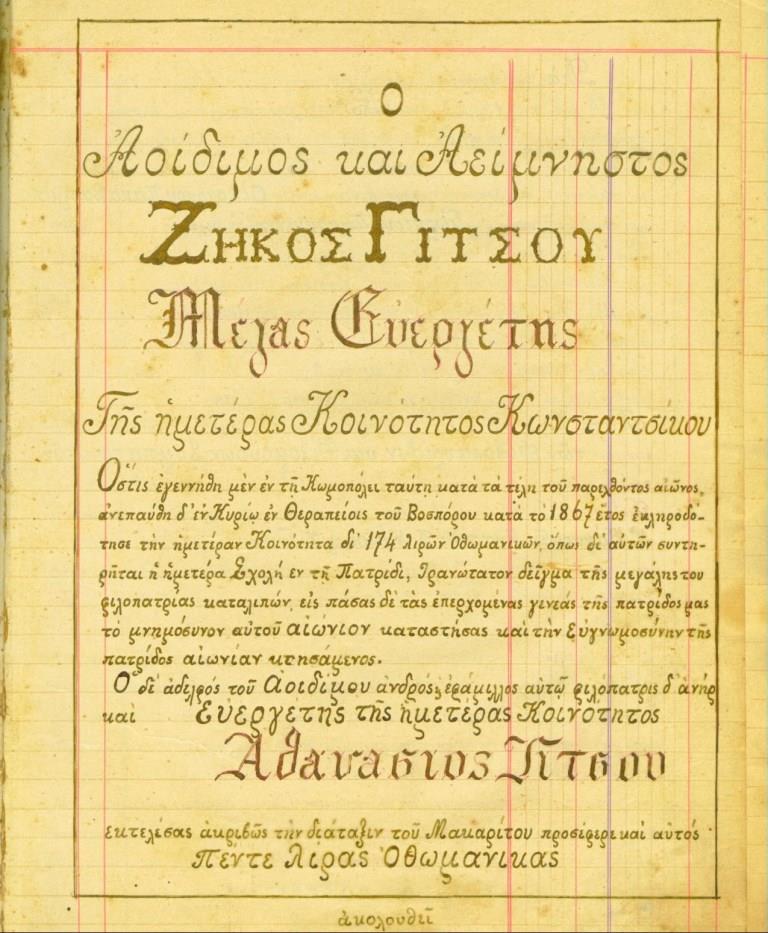 Ο
Ἀοίδιμος και Ἀείμνηστος
ΖΗΚΟΣ ΓΙΤΣΟΥ
Μέγας Ευεργέτης
Τῆς ἡμετέρας Κοινότητος Κωνσταντσίκου
Ὅστις ἐγεννήθη μὲν ἐν τῇ Κωμοπόλει ταύτῃ κατὰ τὰ τέλη τοῦ παρελθόντος αἰῶνος,
ἀνεπαύθη δ' ἐν Κυρίῳ ἐν Θεραπείοις τοῦ Βοσπόρου κατὰ τὸ 1867 ἔτος ἐκληροδό-
τησε τὴν ἡμετέραν Κοινότητα δι' 174 λιρῶν Ὀθωμανικῶν, ὅπως δι' αὐτῶν συντη-
ρῆται ἡ ἡμετέρα Σχολή εν τῇ Πατρίδι, τρανώτατον δεῖγμα τῆς μεγάλης του
φιλοπατρίας καταλιπών, εἰς πάσας δὲ τὰς ἐπερχομένας γενεάς τῆς πατρίδος μας
τὸ μνημόσυνον αὐτοῦ αἰώνιον καταστήσας καὶ τὴν Εὐγνωμοσύνην τῆς
πατρίδος αἰωνίαν κτησάμενος.
Ὁ δὲ ἀδελφός τοῦ Ἀοιδίμου ἀνδρός, ἐφάμιλλος αὐτῷ φιλόπατρις δ' ἀνήρ
καὶ Εὐεργέτης τῆς ἡμετέρας Κοινότητος
Ἀθανασιος Γιτσου
εκτελέσας ἀκριβῶς τὴν διάταξιν τοῦ Μακαρίτου προσέφερε καὶ αὐτός
Πέντε Λίρας Ὀθωμανικας
ἀκολουθεῖ